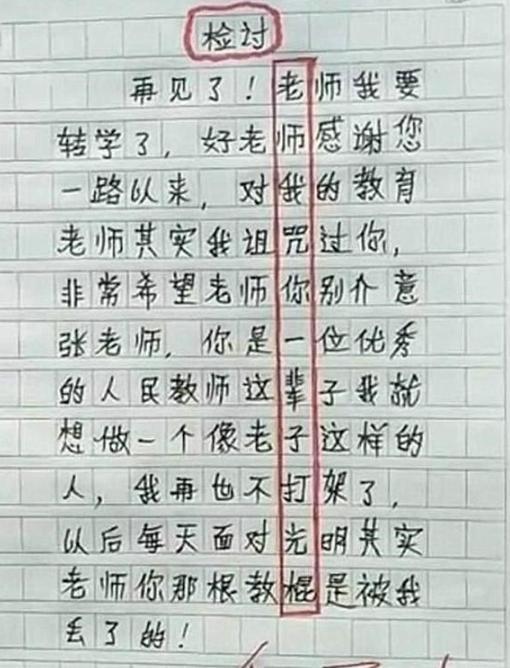 检讨
再见了！老师我要
转学了，好老师感谢您
一路以来，对我的教育
老师其实我诅咒过你，
非常希望老师你别介意
张老师，你是一位优秀
的人民教师这辈子我就
想做一个像老子这样的
人，我再也不打架了，
以后每天面对光明其实
老师你那根教棍是被我
丢了的！